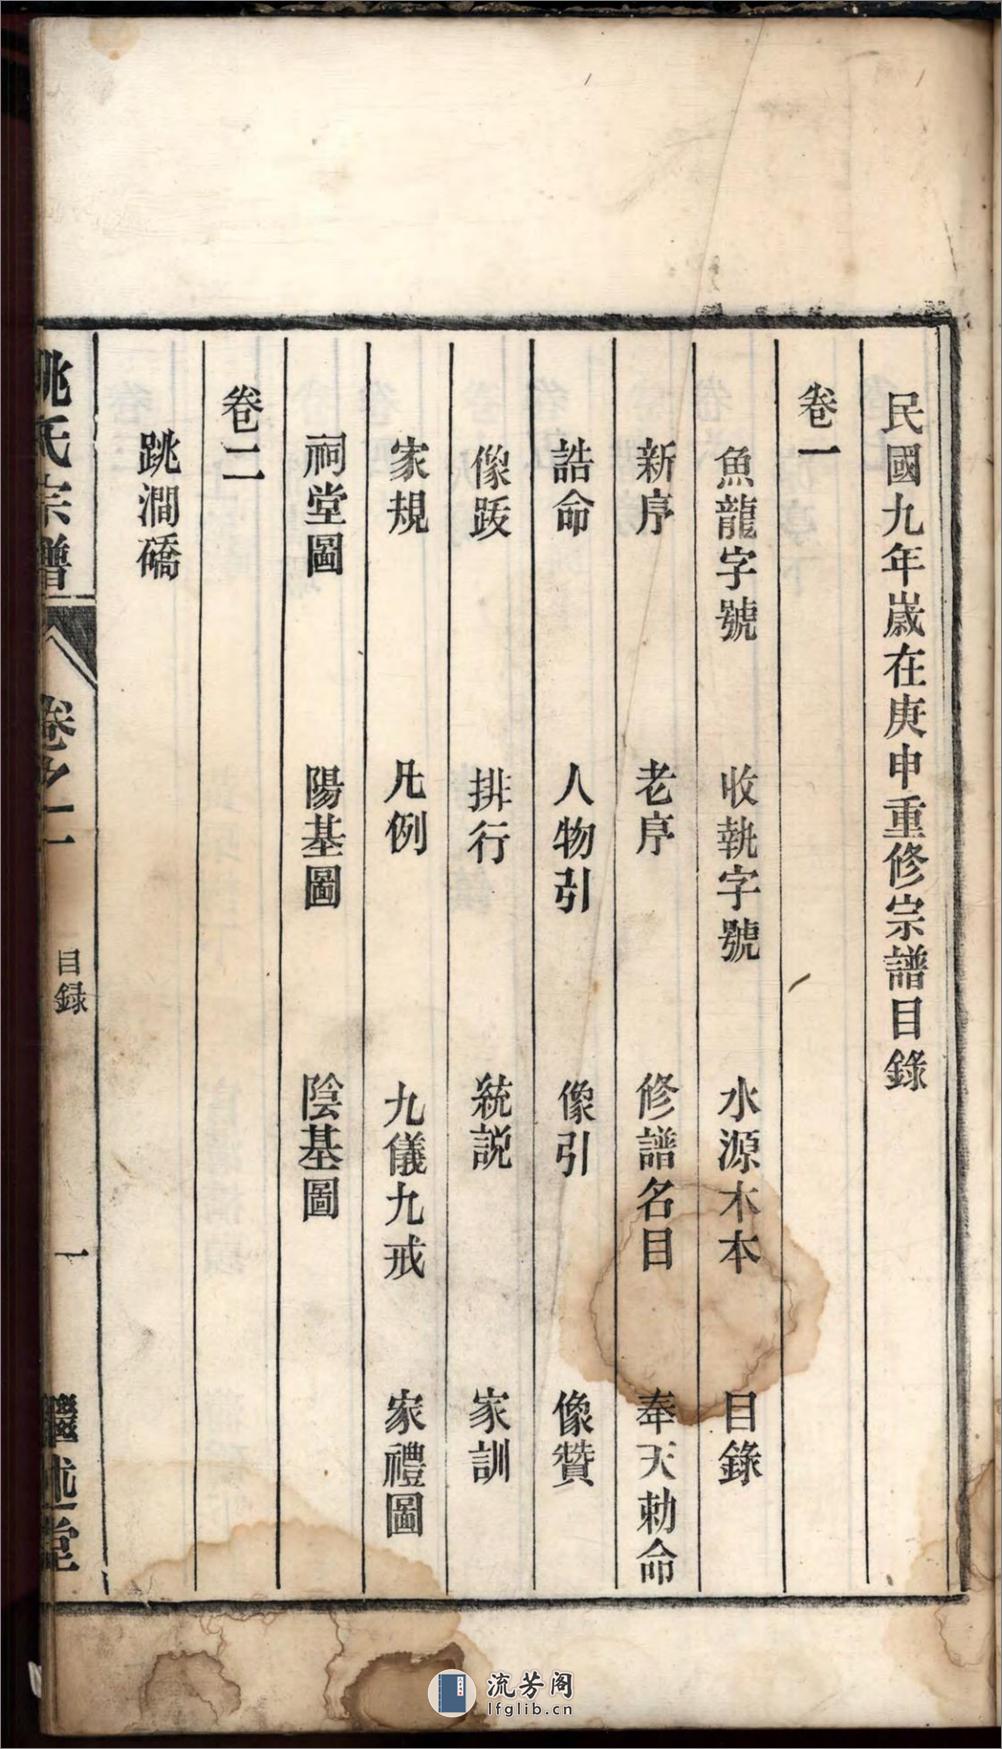 民國九年歲在庚申重修宗譜目錄
卷一
魚龍字號 收執字號 水源木本 目錄
新序 老序 修譜名目 奉天勅命
誥命 人物引 像引 像贊
像跋 排行 統説 家訓
家規 凡例 九儀九戒 家禮圖
祠堂圖 陽基圖 陰基圖
卷二
跳澗礄
姚氏宗譜 卷之一 目録 一 繼述堂
流芳阁
lfglib.cn